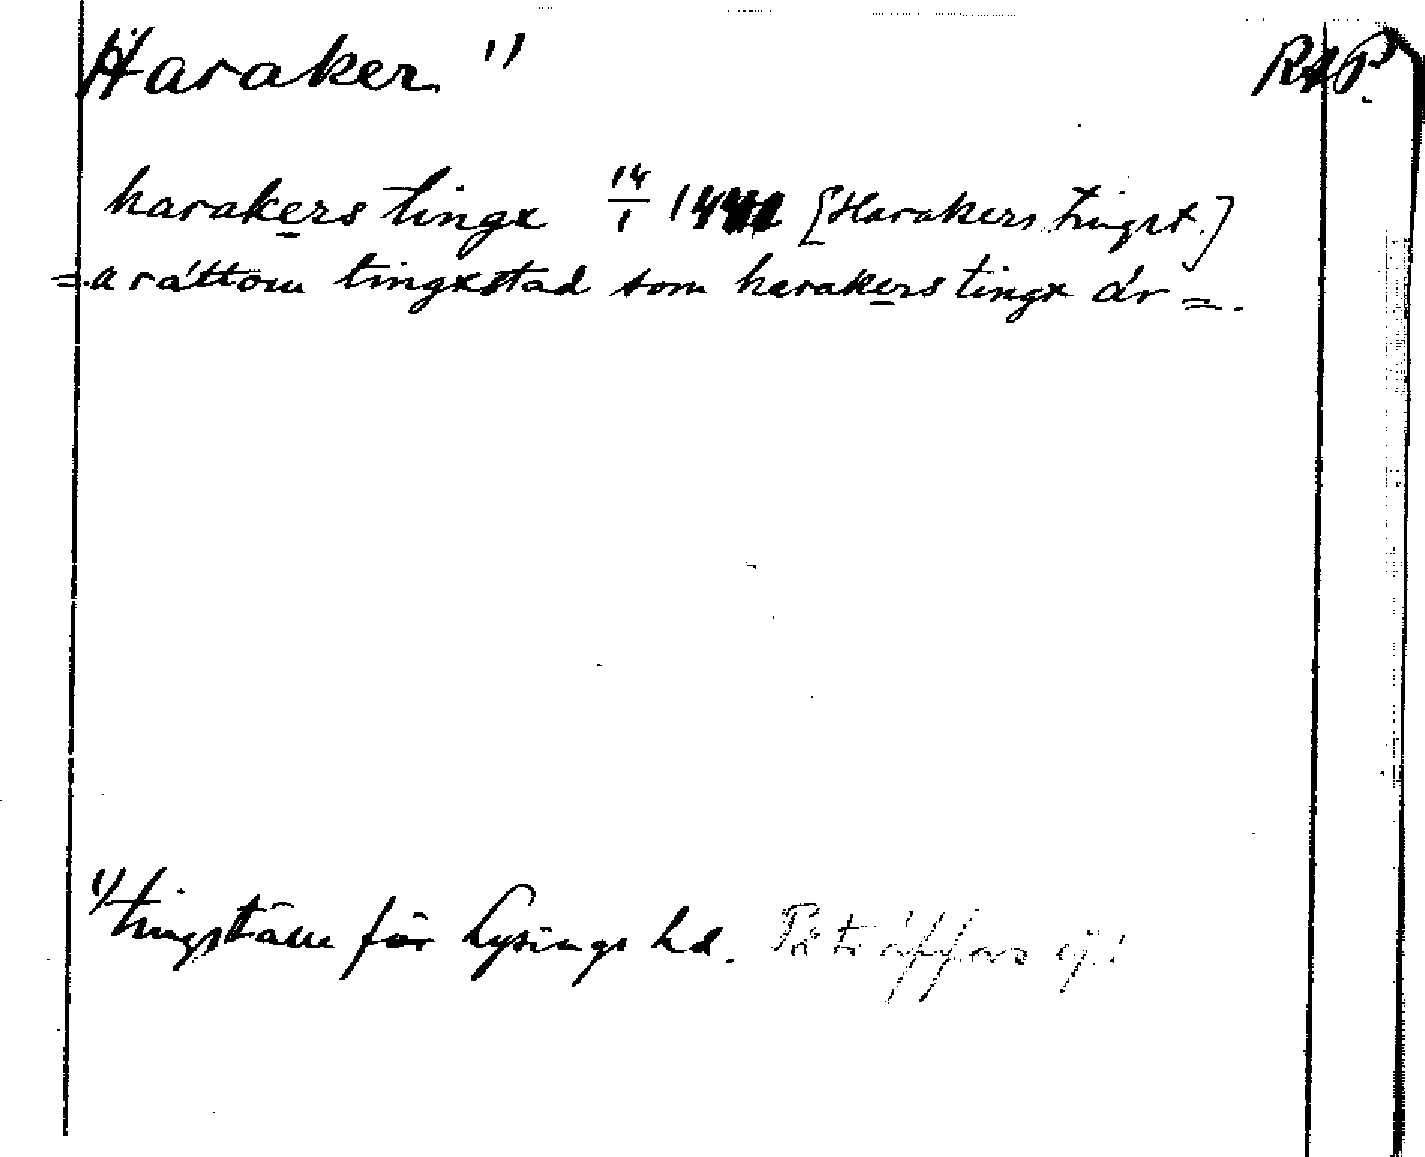 Haraker 1) RAP.
harakers tingx 14/1 1441 [Harakers tingst.]
=a rättom tingxstad som harakers tingx är =.
1) tingställe för Lysings hd. Påträffas ej!